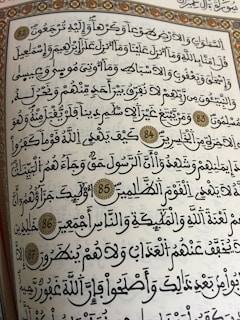 السموت والارض طوعا وكرها وإليه ترجعون 82
قل امنا بالله وما أنزل علينا وما أنزل على إبرهيم وإسمعيل
وإسحق ويعقوب والاسباط وما أوتي موسى وعيسى
والنبيئون من ربهم لا نفرق بين أحد منهم ونحن له
مسلمون 83 ومن يبتغ غير الاسلم دينا فلن يقبل منه وهو
في الاخرة من الخسرين 84 كيف يهدي الله قوما كفروا
إيمنهم وشهدوا أن الرسول حق وجاءهم البينت
لا يهدي القوم الظلمين 85 أولئك جزاؤهم أن
لعنة الله والملئكة والناس أجمعين 86 خلدين
لا يخفف عنهم العذاب ولا هم ينظرون 87
من بعد ذلك وأصلحوا فإن الله غفور رحيم